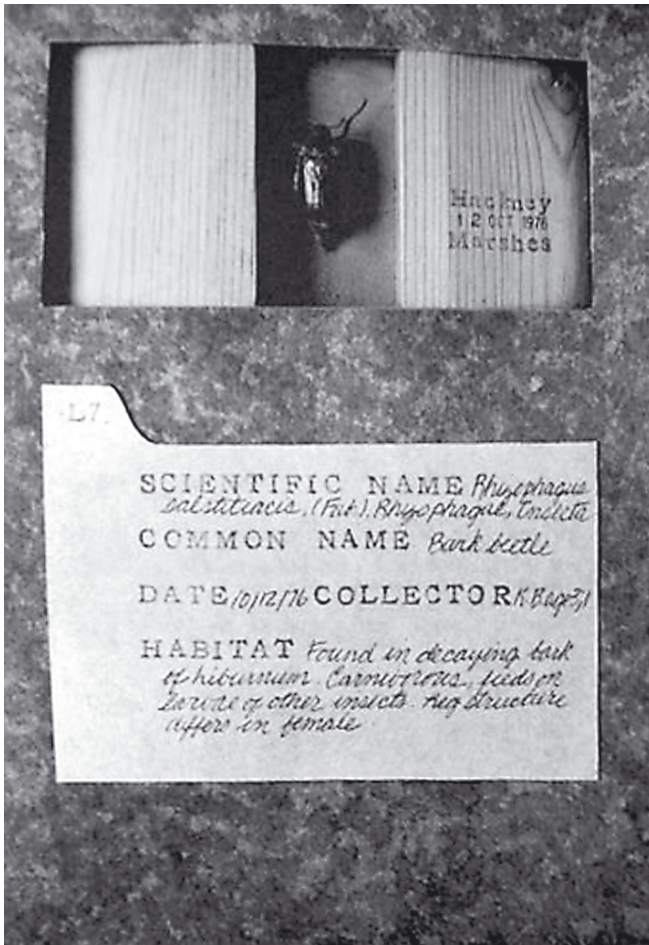 Hackney
12 OCT 1976
Marshes
L7.
SCIENTIFIC NAME Rhizophagus
(Fab), Insecta
COMMON NAME Bark beetle
DATE 10/12/76 COLLECTOR K.
HABITAT Found in decaying bark
of hiburnum. Carnivorous, feeds on
larvae of other insects. structure
differs in female